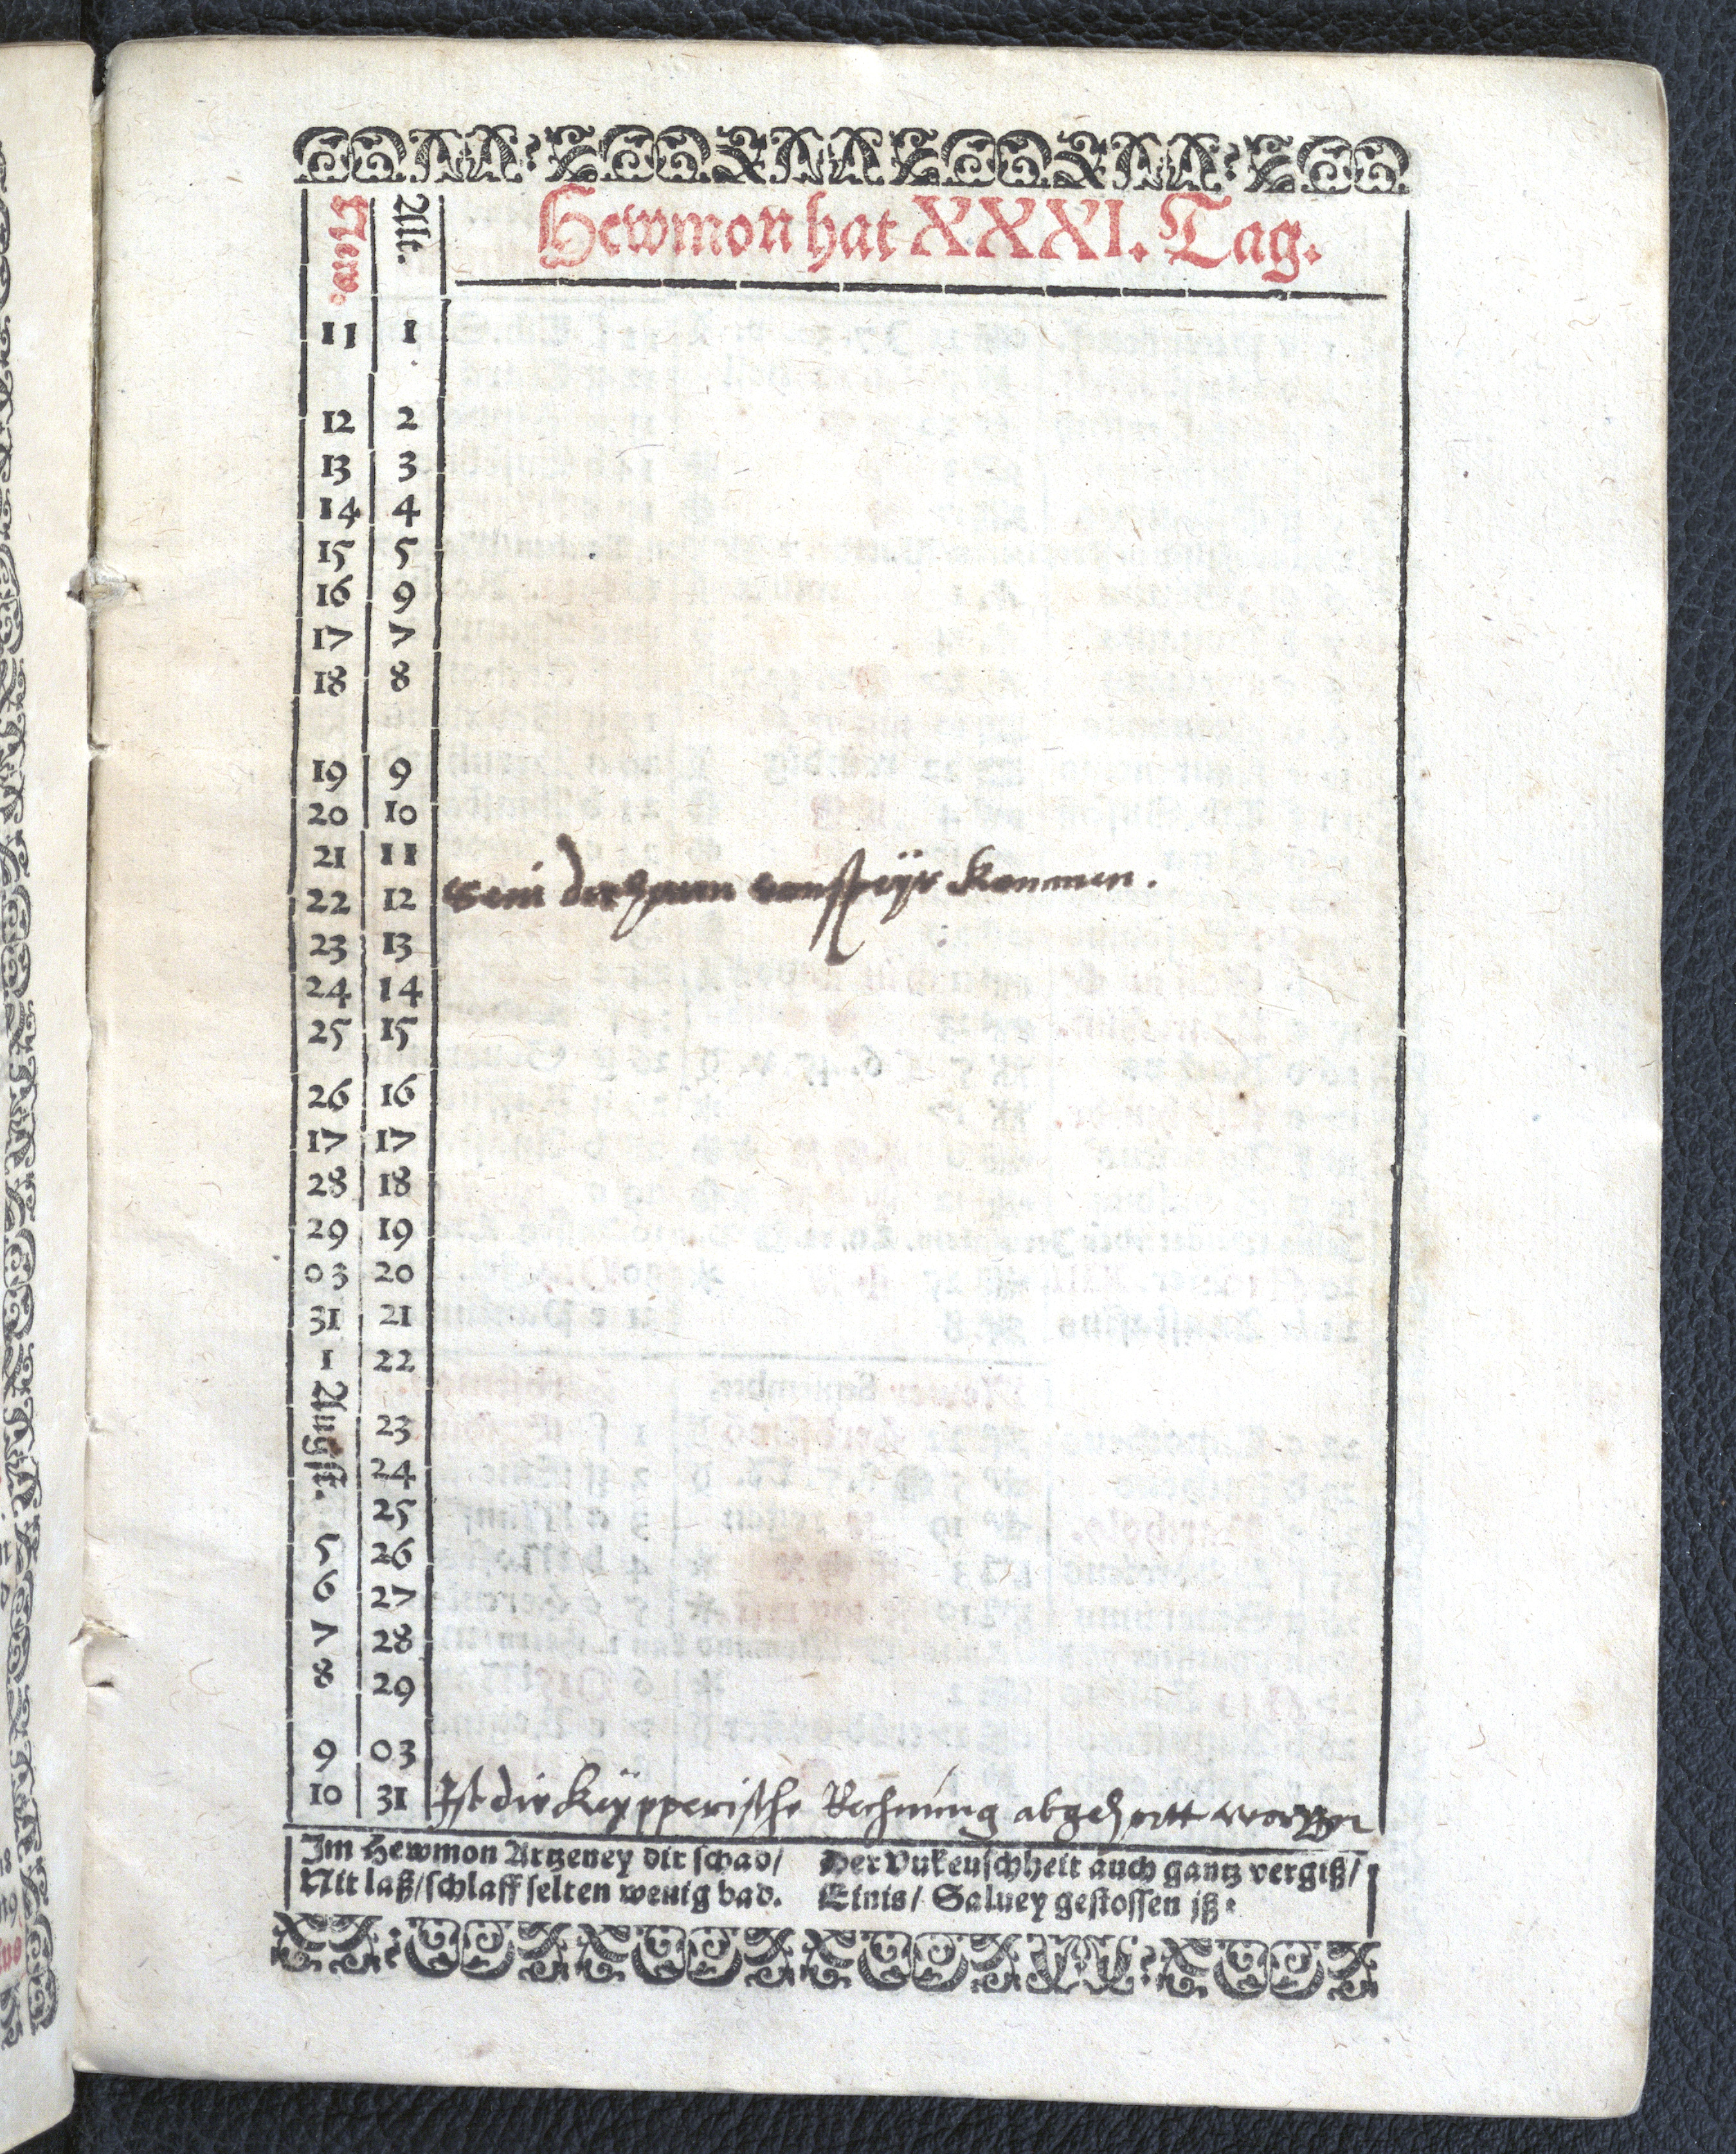 New. Alt. Hewmon hat XXXI. Tag.
11 1
12 2
13 3
14 4
15 5
16 9
17 7
18 8
19 9
20 10
21 11
22 12 Sein von Speÿr kommen.
23 13
24 14
25 15
26 16
17 17
28 18
29 19
03 20
31 21
1 22
Augst. 23
24
25
5 26
6 27
7 28
8 29
9 03
10 31 Ist die Keÿpperische Rechnung abgehortt worden
Im Hewmon Artzeney dir schad/
Nit laß/schlaff selten wenig bad.
Der Vnkeuschheit auch gantz vergiß/
Einis/ Saluey gestossen jß.